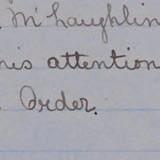 McLaughlin
his attention
Order.